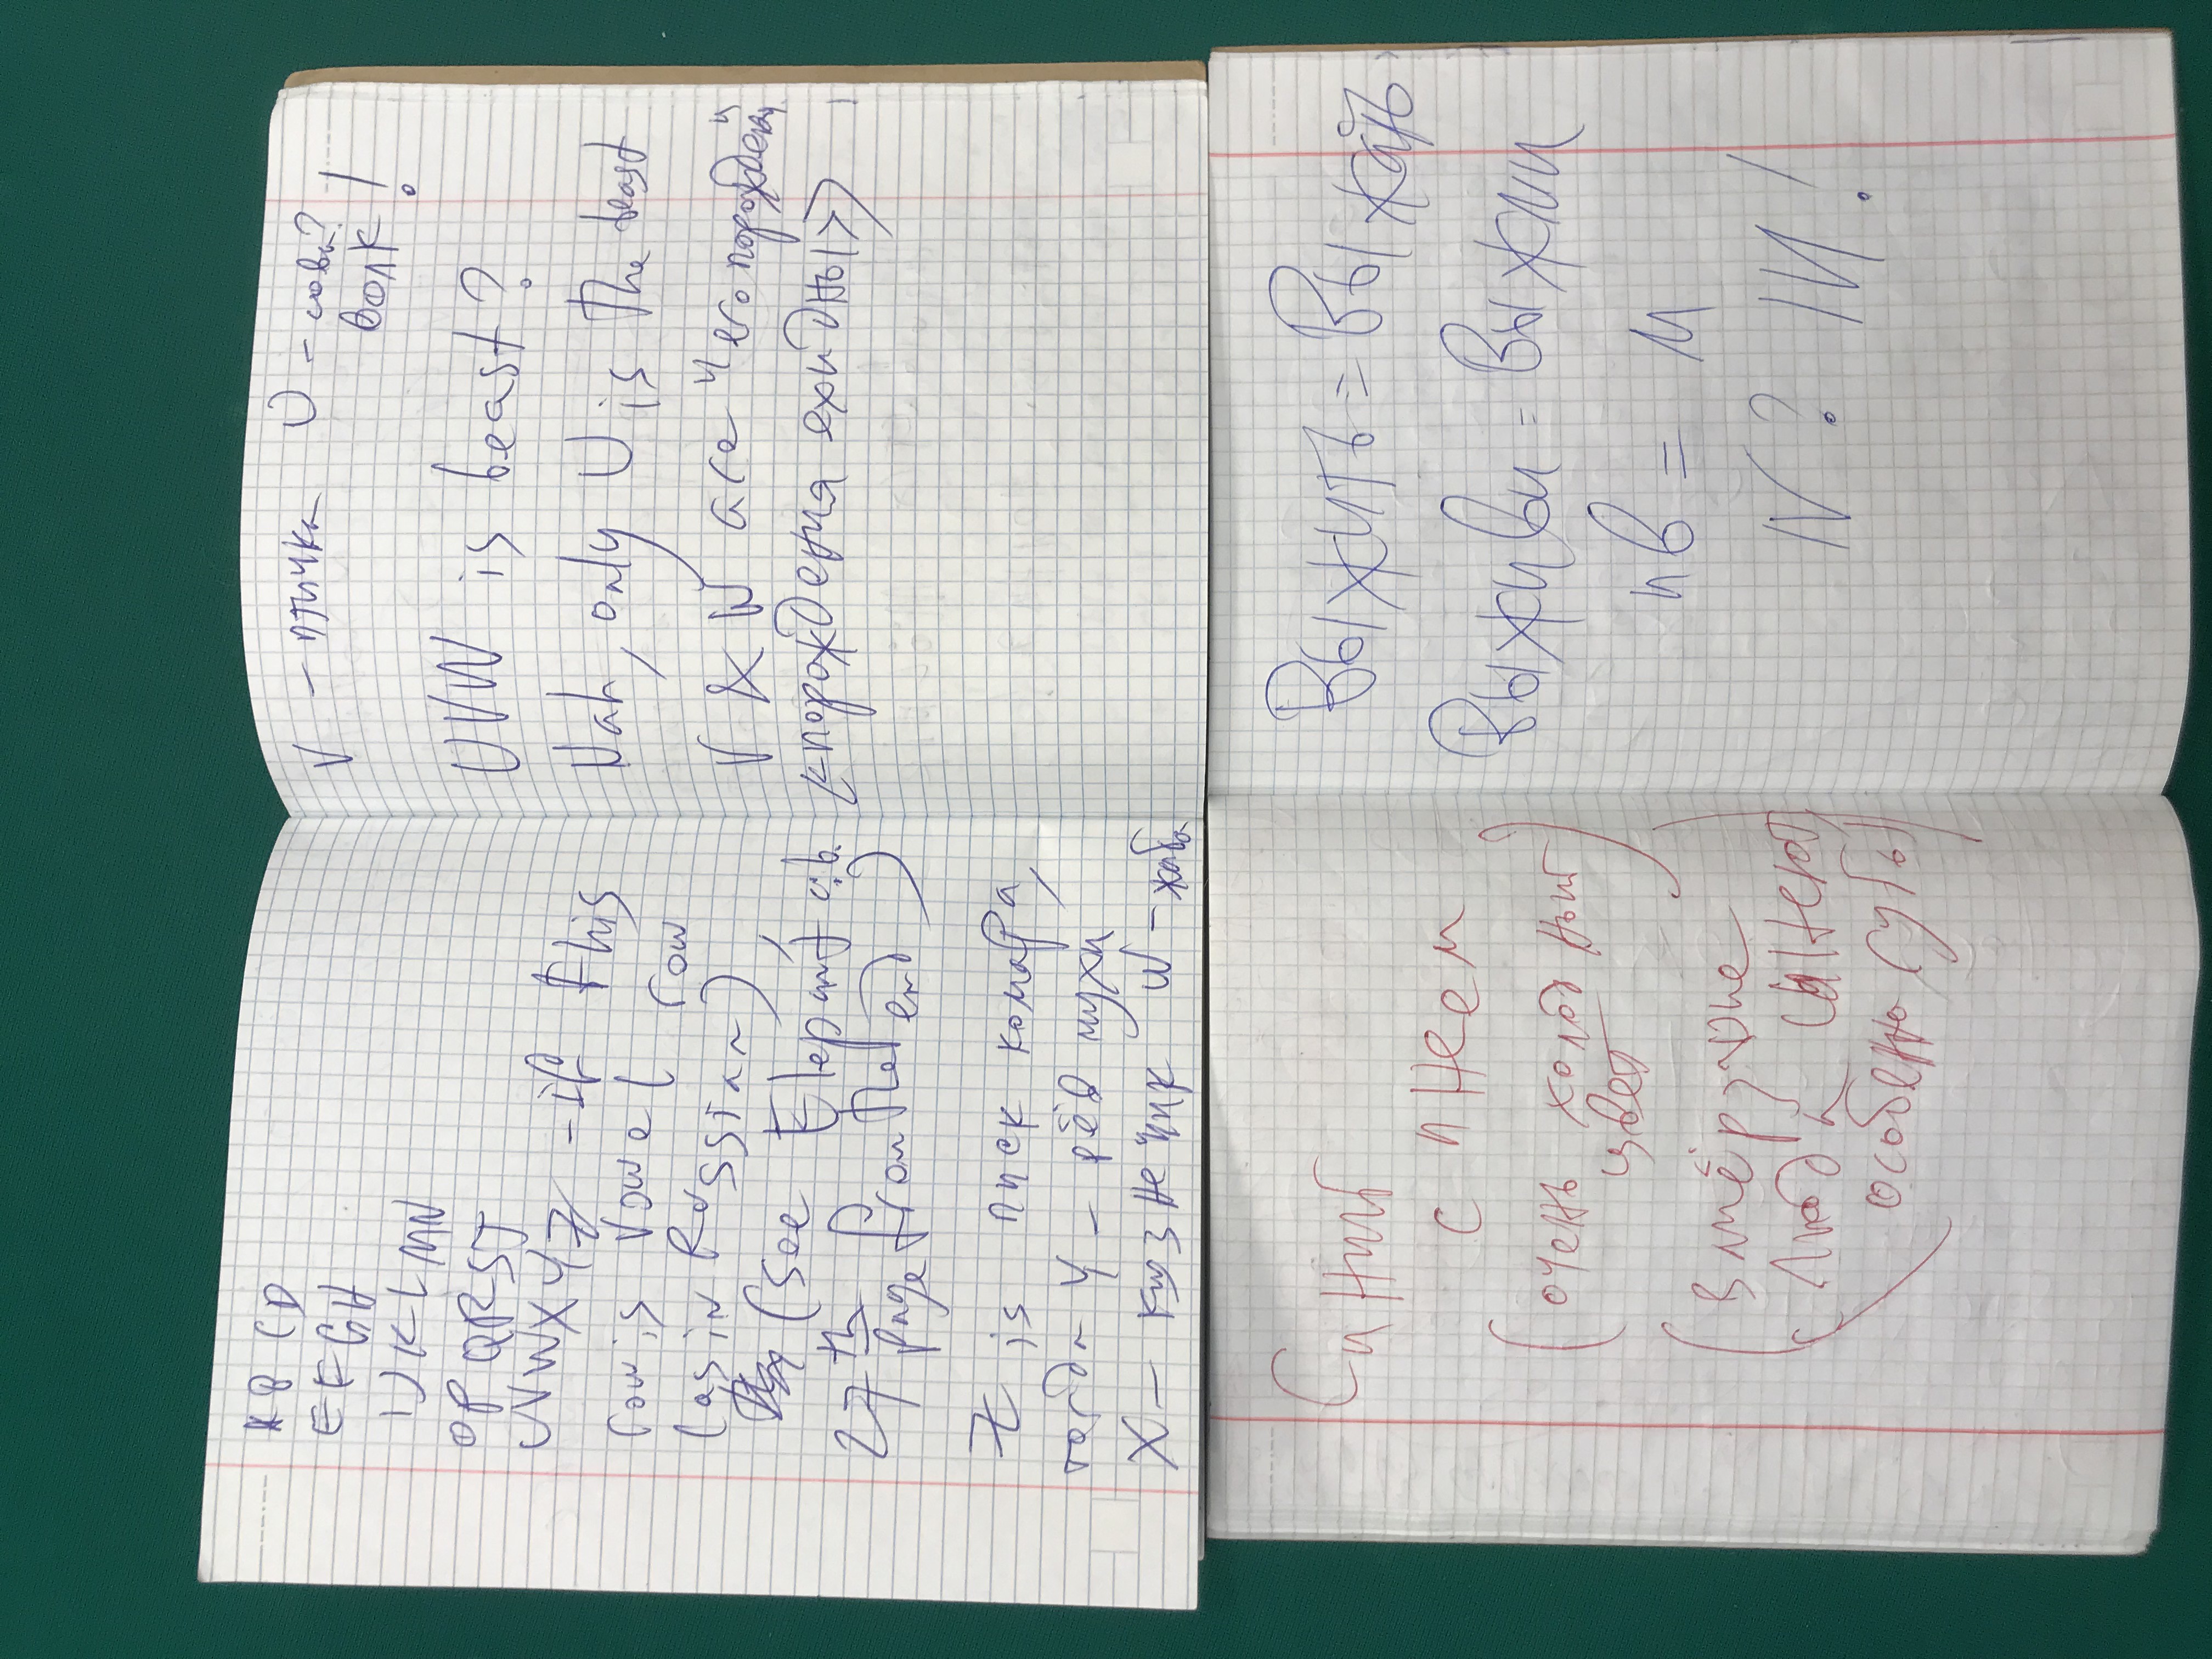 A B C D
E F G H
I J K L M N
O P Q R S T
U V W X Y Z - if this
row is vowel row
(as in Russian),
(see Elepant a.b.
27th page from the end)
Z is писк комара,
тогда Y - рёв мухи
X - кузнечик W - жаба
V - птичка U - сова?
волк!
UVW is beast?
Nah, only U is the beast
V & W are "его порождения"
<<порождения ехидны>>
Синий
с инеем
(очень холодный
цвет)
(Замёрзшие
люди синеют,
особенно губы)
Выжить = Выжать
Выживи = Выжми
ив = м
N? И!